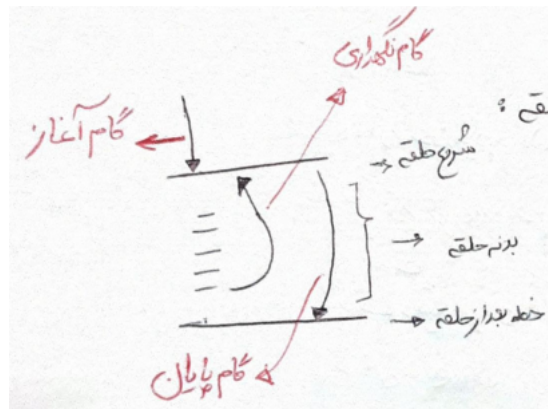 گام نگهداری
گام آغاز
شروع حلقه
بدنه حلقه
خط بعد از حلقه
گام پایان